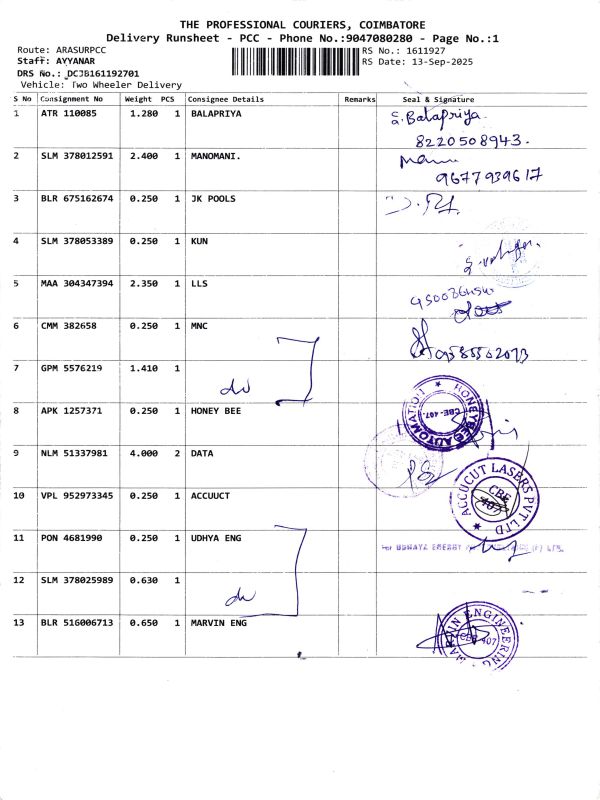 THE PROFESSIONAL COURIERS, COIMBATORE
Delivery Runsheet - PCC - Phone No.:9047080280 - Page No.:1
Route: ARASURPCC RS No.: 1611927
Staff: AYYANAR RS Date: 13-Sep-2025
DRS No.: DCJB161192701
Vehicle: Two Wheeler Delivery
S No Consignment No Weight PCS Consignee Details Remarks Seal & Signature
1 ATR 110085 1.280 1 BALAPRIYA S.Balapriya
8220508943.
2 SLM 378012591 2.400 1 MANOMANI.
9677939617
3 BLR 675162674 0.250 1 JK POOLS
4 SLM 378053389 0.250 1 KUN
5 MAA 304347394 2.350 1 LLS
6 CMM 382658 0.250 1 MNC
7 GPM 5576219 1.410 1
do
8 APK 1257371 0.250 1 HONEY BEE HONEYBEE AUTOMATION CBE-407.
9 NLM 51337981 4.000 2 DATA
10 VPL 952973345 0.250 1 ACCUUCT ACCUCUT LASERS PVT LTD CBE 407
11 PON 4681990 0.250 1 UDHYA ENG
12 SLM 378025989 0.630 1
do
13 BLR 516006713 0.650 1 MARVIN ENG MARVIN ENGINEERING CBE-407